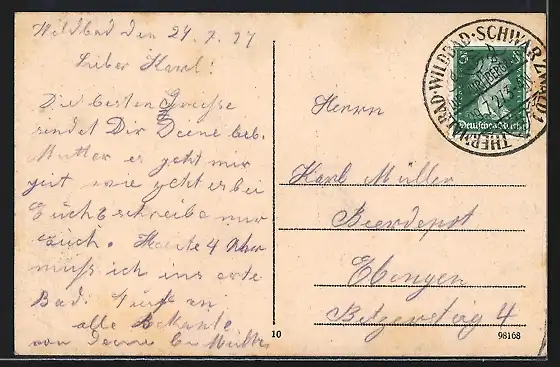 Wildbad den 24.7.27
Lieber Karl!
Die besten Grüsse
sendet Dir Deine lieb.
Mutter es geht mir
gut wie geht es bei
Euch schreibe mir
auch. Heute 4 Uhr
muß ich ins erste
Bad. Gruß an
alle Bekante
von Deine lb Mutter
Herrn
Karl Müller
Bierdepot
Ebingen
4
10
98168
THERMALBAD·WILDBAD·SCHWARZWALD
5
Deutsches Reich